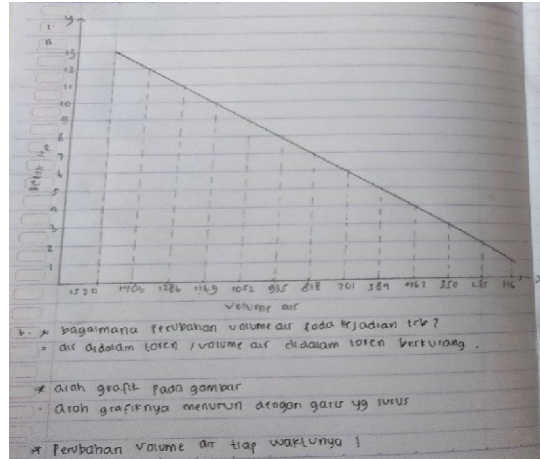 y
1.
a
13
12
11
10
9
8
7
6
5
4
3
2
1
1520 1403 1286 1169 1052 935 818 701 584 467 350 233 116 x
volume air
b. * bagaimana perubahan volume air pada kejadian tsb?
= air didalam toren / volume air didalam toren berkurang.
* arah grafik pada gambar
- arah grafiknya menurun dengan garis yg lurus
* perubahan volume air tiap waktunya !